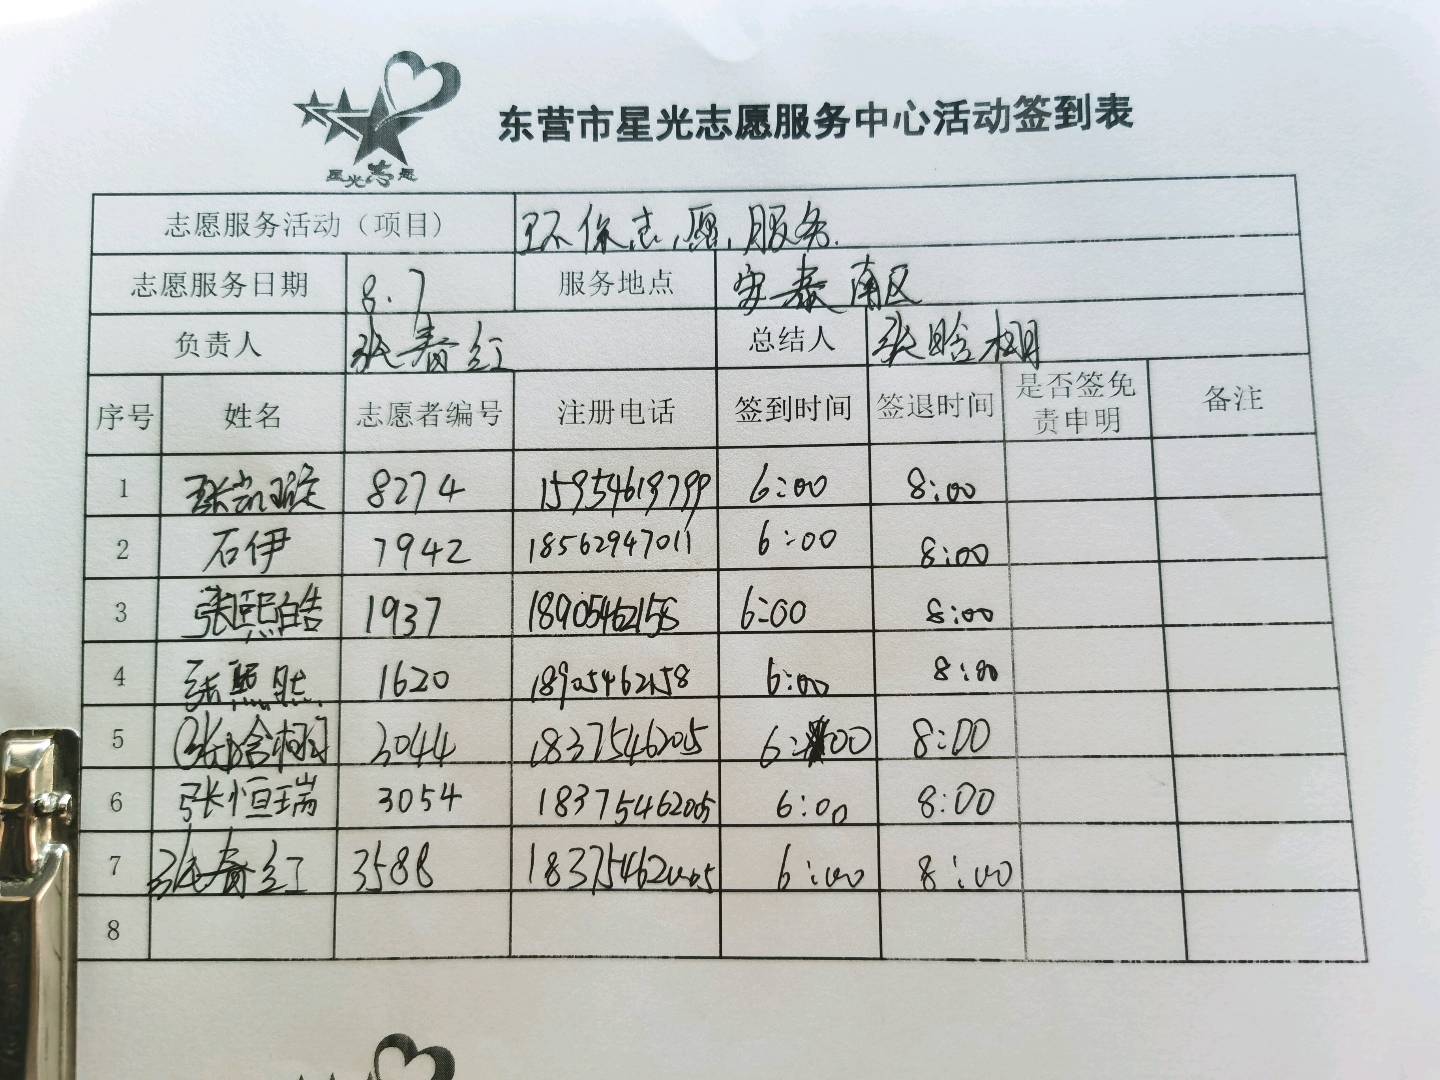 星光志愿
东营市星光志愿服务中心活动签到表
志愿服务活动（项目） 环保志愿服务.
志愿服务日期 8.7 服务地点 安泰南区
负责人 张春红 总结人 张晗栩
序号 姓名 志愿者编号 注册电话 签到时间 签退时间 是否签免责申明 备注
1 张凯璇 8274 15954619799 6:00 8:00
2 石伊 7942 18562947011 6:00 8:00
3 张熙皓 1937 18905462158 6:00 8:00
4 张熙 1620 18905462158 6:00 8:00
5 张晗栩 3044 18375462005 6:00 8:00
6 张恒瑞 3054 18375462005 6:00 8:00
7 张春红 3588 18375462005 6:00 8:00
8